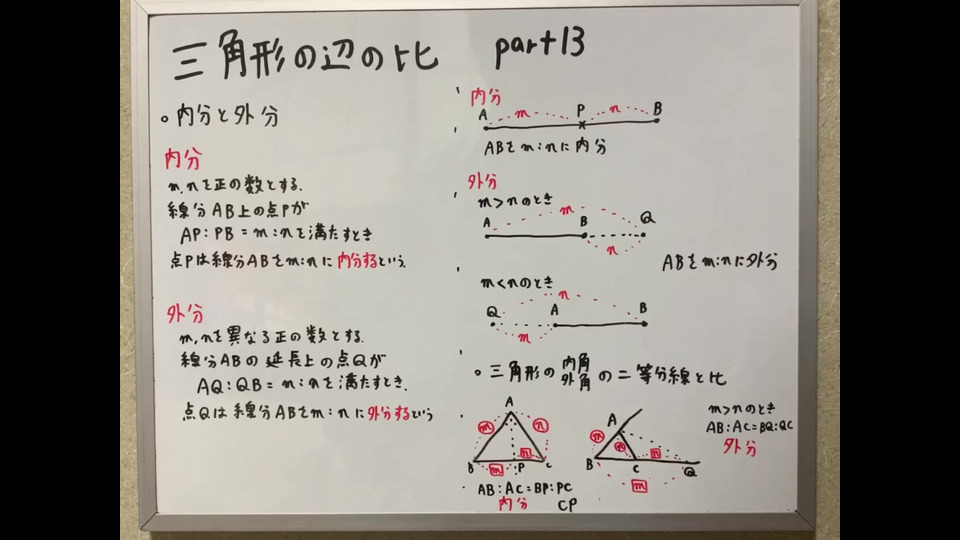 三角形の辺の比 part13
○内分と外分
内分
m,nを正の数とする.
線分AB上の点Pが
AP:PB=m:nを満たすとき
点Pは線分ABをm:nに内分するという.
外分
m,nを異なる正の数とする.
線分ABの延長上の点Qが
AQ:QB=m:nを満たすとき.
点Qは線分ABをm:nに外分するという
内分
A m P n B
ABをm:nに内分
外分
m>nのとき
A m B Q
n
ABをm:nに外分
m<nのとき
n
Q A B
m
○三角形の内角外角の二等分線と比
A
m n
B m P n C
AB:AC=BP:PC
内分 CP
A
m n n
B C Q
m
m>nのとき
AB:AC=BQ:QC
外分